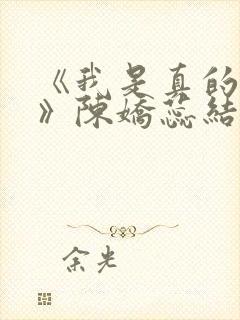 《我是真的
》陳嬌蕊結
余光